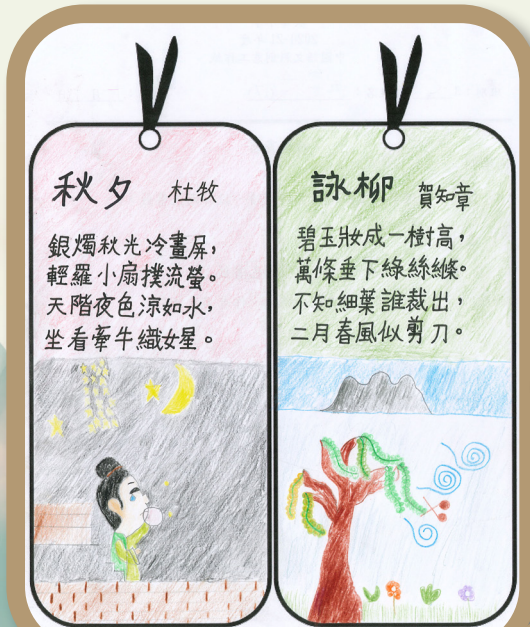 秋夕 杜牧
銀燭秋光冷畫屏，
輕羅小扇撲流螢。
天階夜色涼如水，
坐看牽牛織女星。
詠柳 賀知章
碧玉妝成一樹高，
萬條垂下綠絲縧。
不知細葉誰裁出，
二月春風似剪刀。